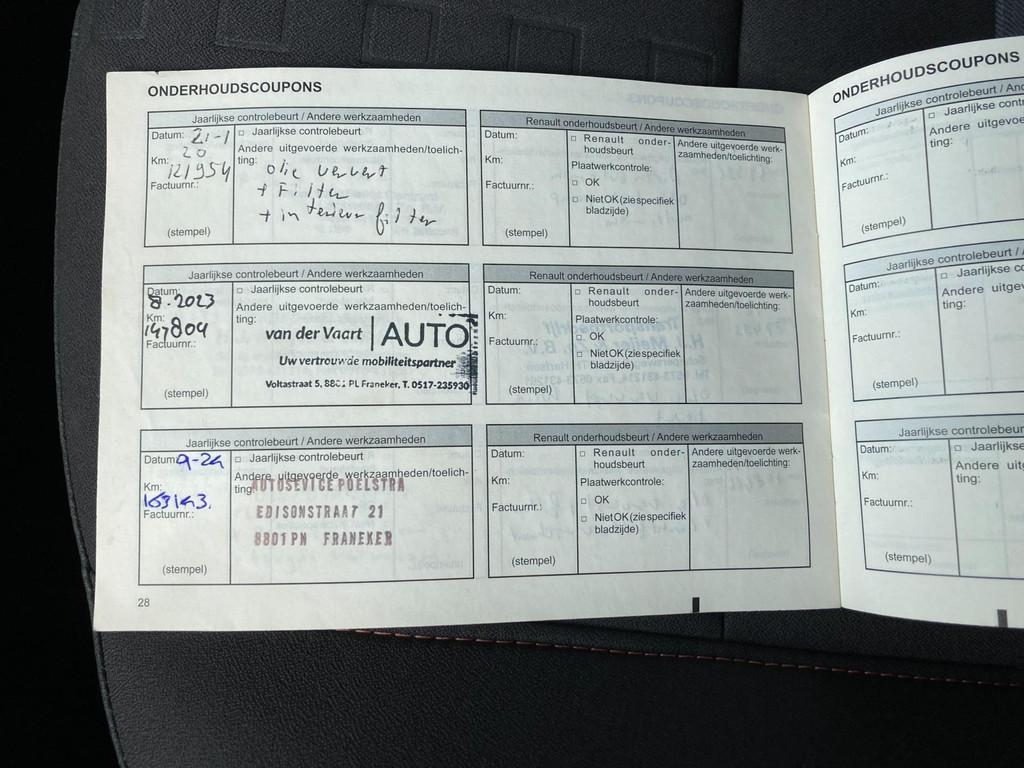 ONDERHOUDSCOUPONS
Jaarlijkse controlebeurt / Andere werkzaamheden
Datum: 21-1
20
□ Jaarlijkse controlebeurt
Andere uitgevoerde werkzaamheden/toelich-
ting:
Km:
121954
Factuurnr.:
olie ververst
+ Filter
+ interieur filter
(stempel)
Renault onderhoudsbeurt / Andere werkzaamheden
Datum:
Km:
Factuurnr.:
(stempel)
□ Renault onder-
houdsbeurt
Plaatwerkcontrole:
□ OK
□ Niet OK (zie specifiek
bladzijde)
Andere uitgevoerde werk-
zaamheden/toelichting:
Jaarlijkse controlebeurt / Andere werkzaamheden
Datum:
8.2023
Km:
147804
Factuurnr.:
(stempel)
□ Jaarlijkse controlebeurt
Andere uitgevoerde werkzaamheden/toelich-
ting:
van der Vaart | AUTO
Uw vertrouwde mobiliteitspartner
Voltastraat 5, 8801 PL Franeker, T. 0517-235930
Renault onderhoudsbeurt / Andere werkzaamheden
Datum:
Km:
Factuurnr.:
(stempel)
□ Renault onder-
houdsbeurt
Plaatwerkcontrole:
□ OK
□ Niet OK (zie specifiek
bladzijde)
Andere uitgevoerde werk-
zaamheden/toelichting:
Jaarlijkse controlebeurt / Andere werkzaamheden
Datum: 9-24
Km:
163143.
Factuurnr.:
(stempel)
□ Jaarlijkse controlebeurt
Andere uitgevoerde werkzaamheden/toelich-
ting:
AUTOSEVICE POELSTRA
EDISONSTRAAT 21
8801PN FRANEKER
Renault onderhoudsbeurt / Andere werkzaamheden
Datum:
Km:
Factuurnr.:
(stempel)
□ Renault onder-
houdsbeurt
Plaatwerkcontrole:
□ OK
□ Niet OK (zie specifiek
bladzijde)
Andere uitgevoerde werk-
zaamheden/toelichting:
28
ONDERHOUDSCOUPONS
Jaarlijkse controlebeurt / And
Datum:
Km:
Factuurnr.:
(stempel)
□ Jaarlijkse cont
Andere uitgevoe
ting:
Jaarlijkse controlebeurt /
Datum:
Km:
Factuurnr.:
(stempel)
□ Jaarlijkse co
Andere uitge
ting:
Jaarlijkse controlebeur
Datum:
Km:
Factuurnr.:
(stempel)
□ Jaarlijkse
Andere uit
ting: